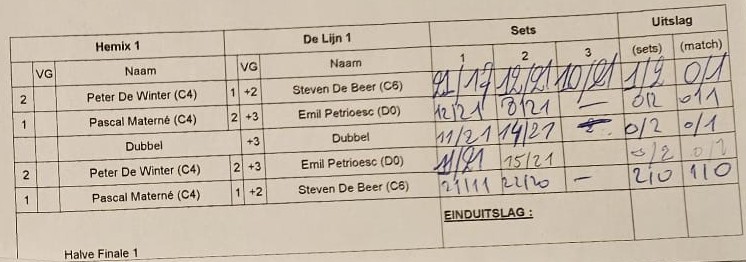 Hemix 1 De Lijn 1 Sets Uitslag
VG Naam VG Naam 1 2 3 (sets) (match)
2 Peter De Winter (C4) 1 +2 Steven De Beer (C6) 21/17 12/21 10/21 1/2 0/1
1 Pascal Materné (C4) 2 +3 Emil Petrioesc (D0) 12/21 8/21 — 0/2 0/1
Dubbel +3 Dubbel 11/21 14/21 0/2 0/1
2 Peter De Winter (C4) 2 +3 Emil Petrioesc (D0) 11/21 15/21 0/2 0/1
1 Pascal Materné (C4) 1 +2 Steven De Beer (C6) 21/11 22/20 — 2/0 1/0
EINDUITSLAG :
Halve Finale 1